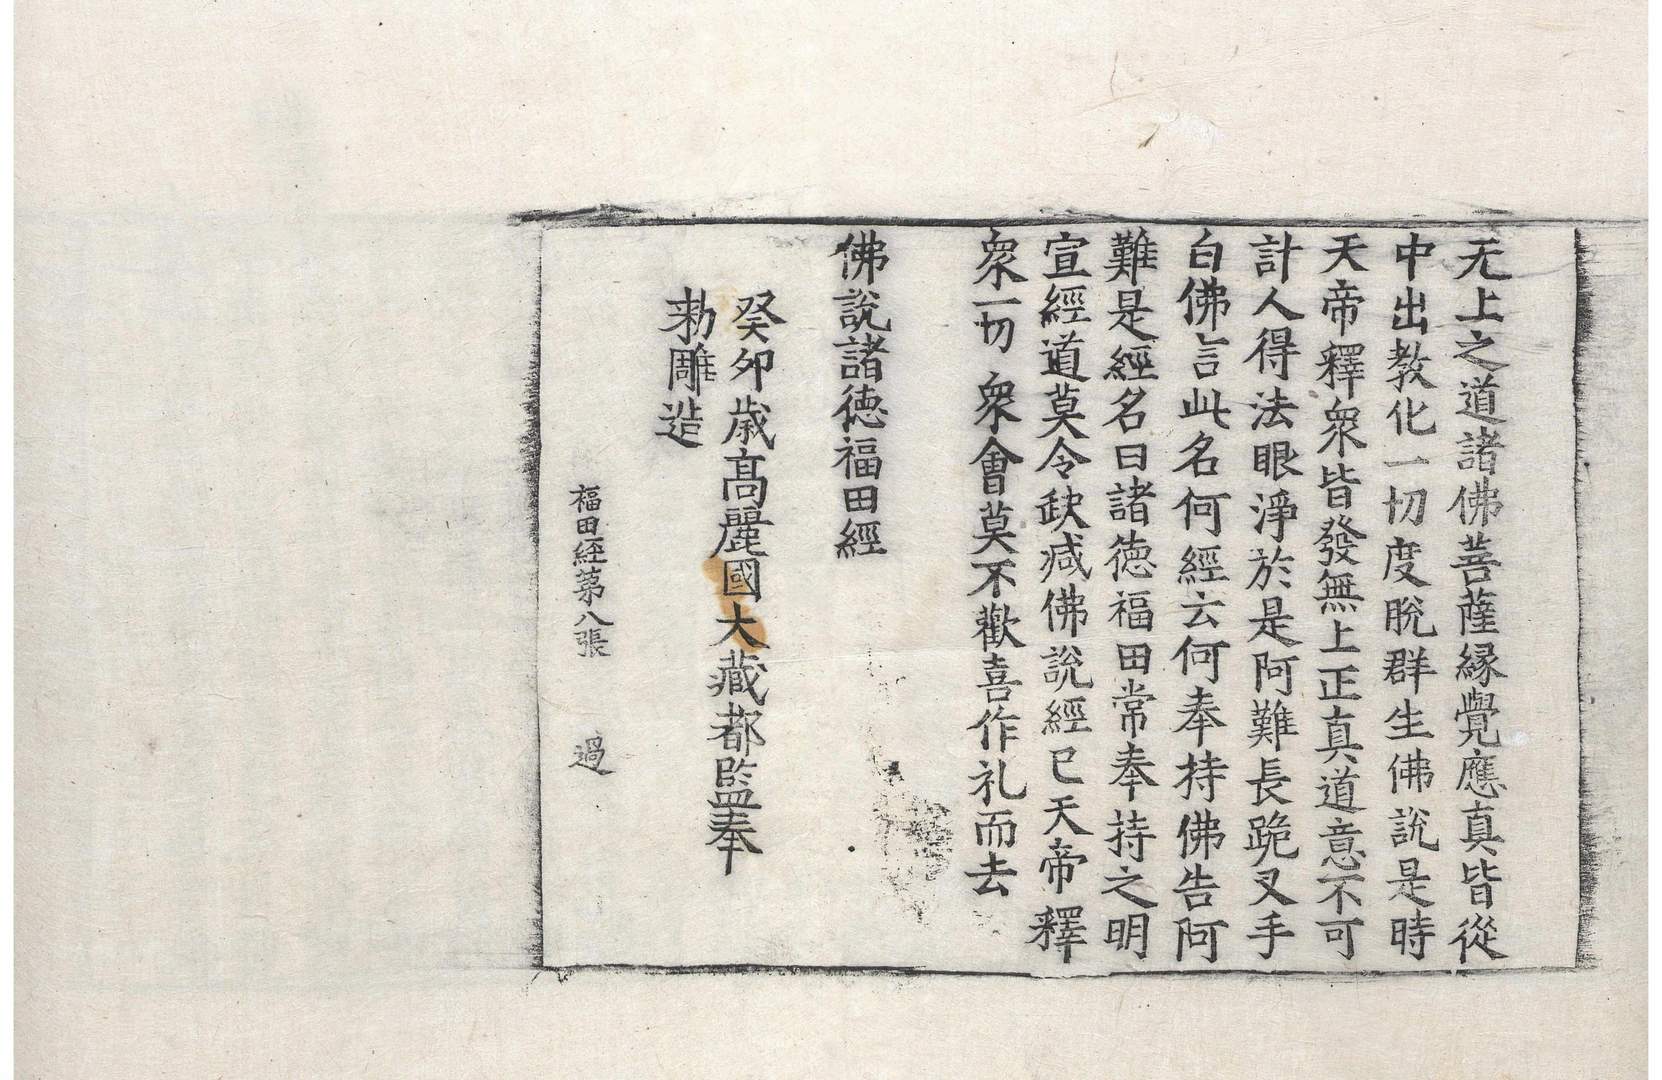 无上之道諸佛菩薩縁覺應真皆從
中出教化一切度脫群生佛說是時
天帝釋衆皆發無上正真道意不可
計人得法眼淨於是阿難長跪叉手
白佛言此名何經云何奉持佛告阿
難是經名曰諸徳福田常奉持之明
宣經道莫令缺減佛說經已天帝釋
衆一切衆會莫不歡喜作礼而去
佛說諸徳福田經
癸卯歲高麗國大藏都監奉
勑雕造
福田経苐八張 過